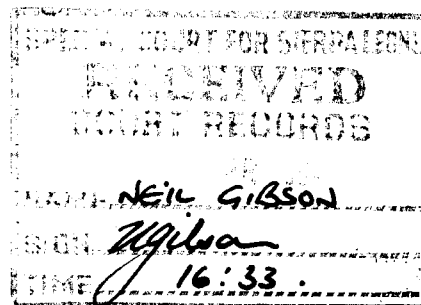 SPECIAL COURT FOR SIERRA LEONE
RECEIVED
COURT RECORDS
NAME NEIL GIBSON
SIGN NGibson
TIME 16:33.